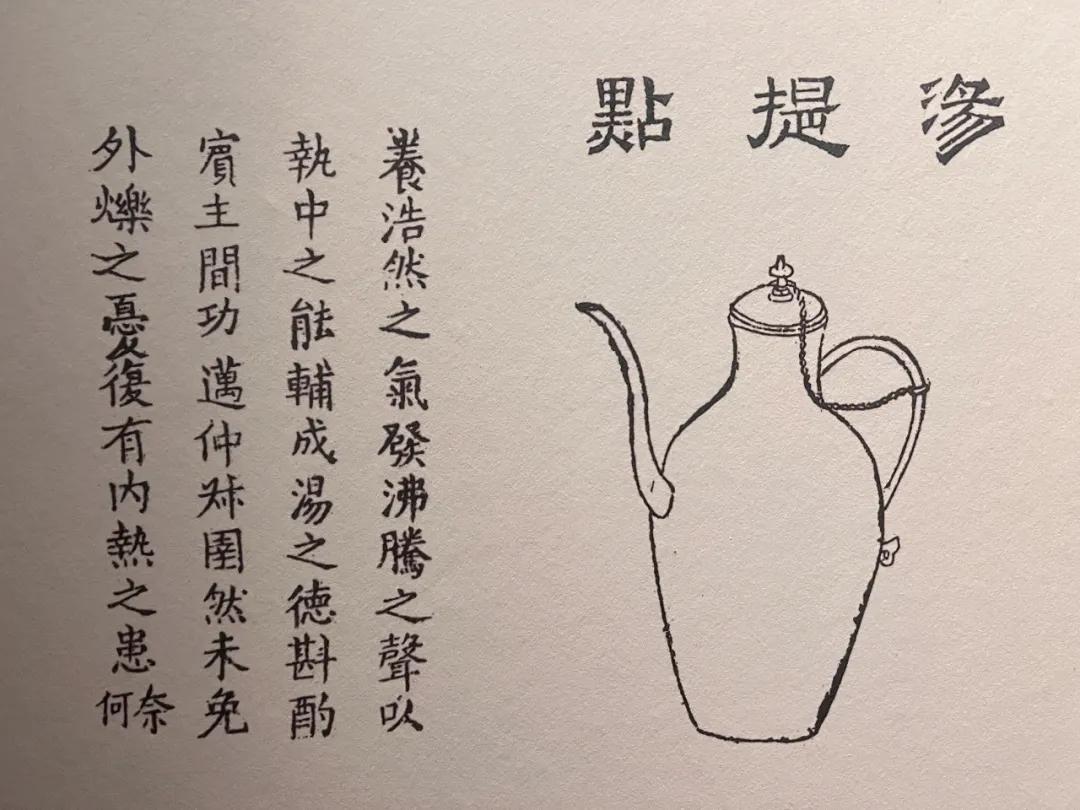 湯提點
養浩然之氣發沸騰之聲以
執中之能輔成湯之徳斟酌
賓主間功邁仲叔圉然未免
外爍之憂復有内熱之患奈何